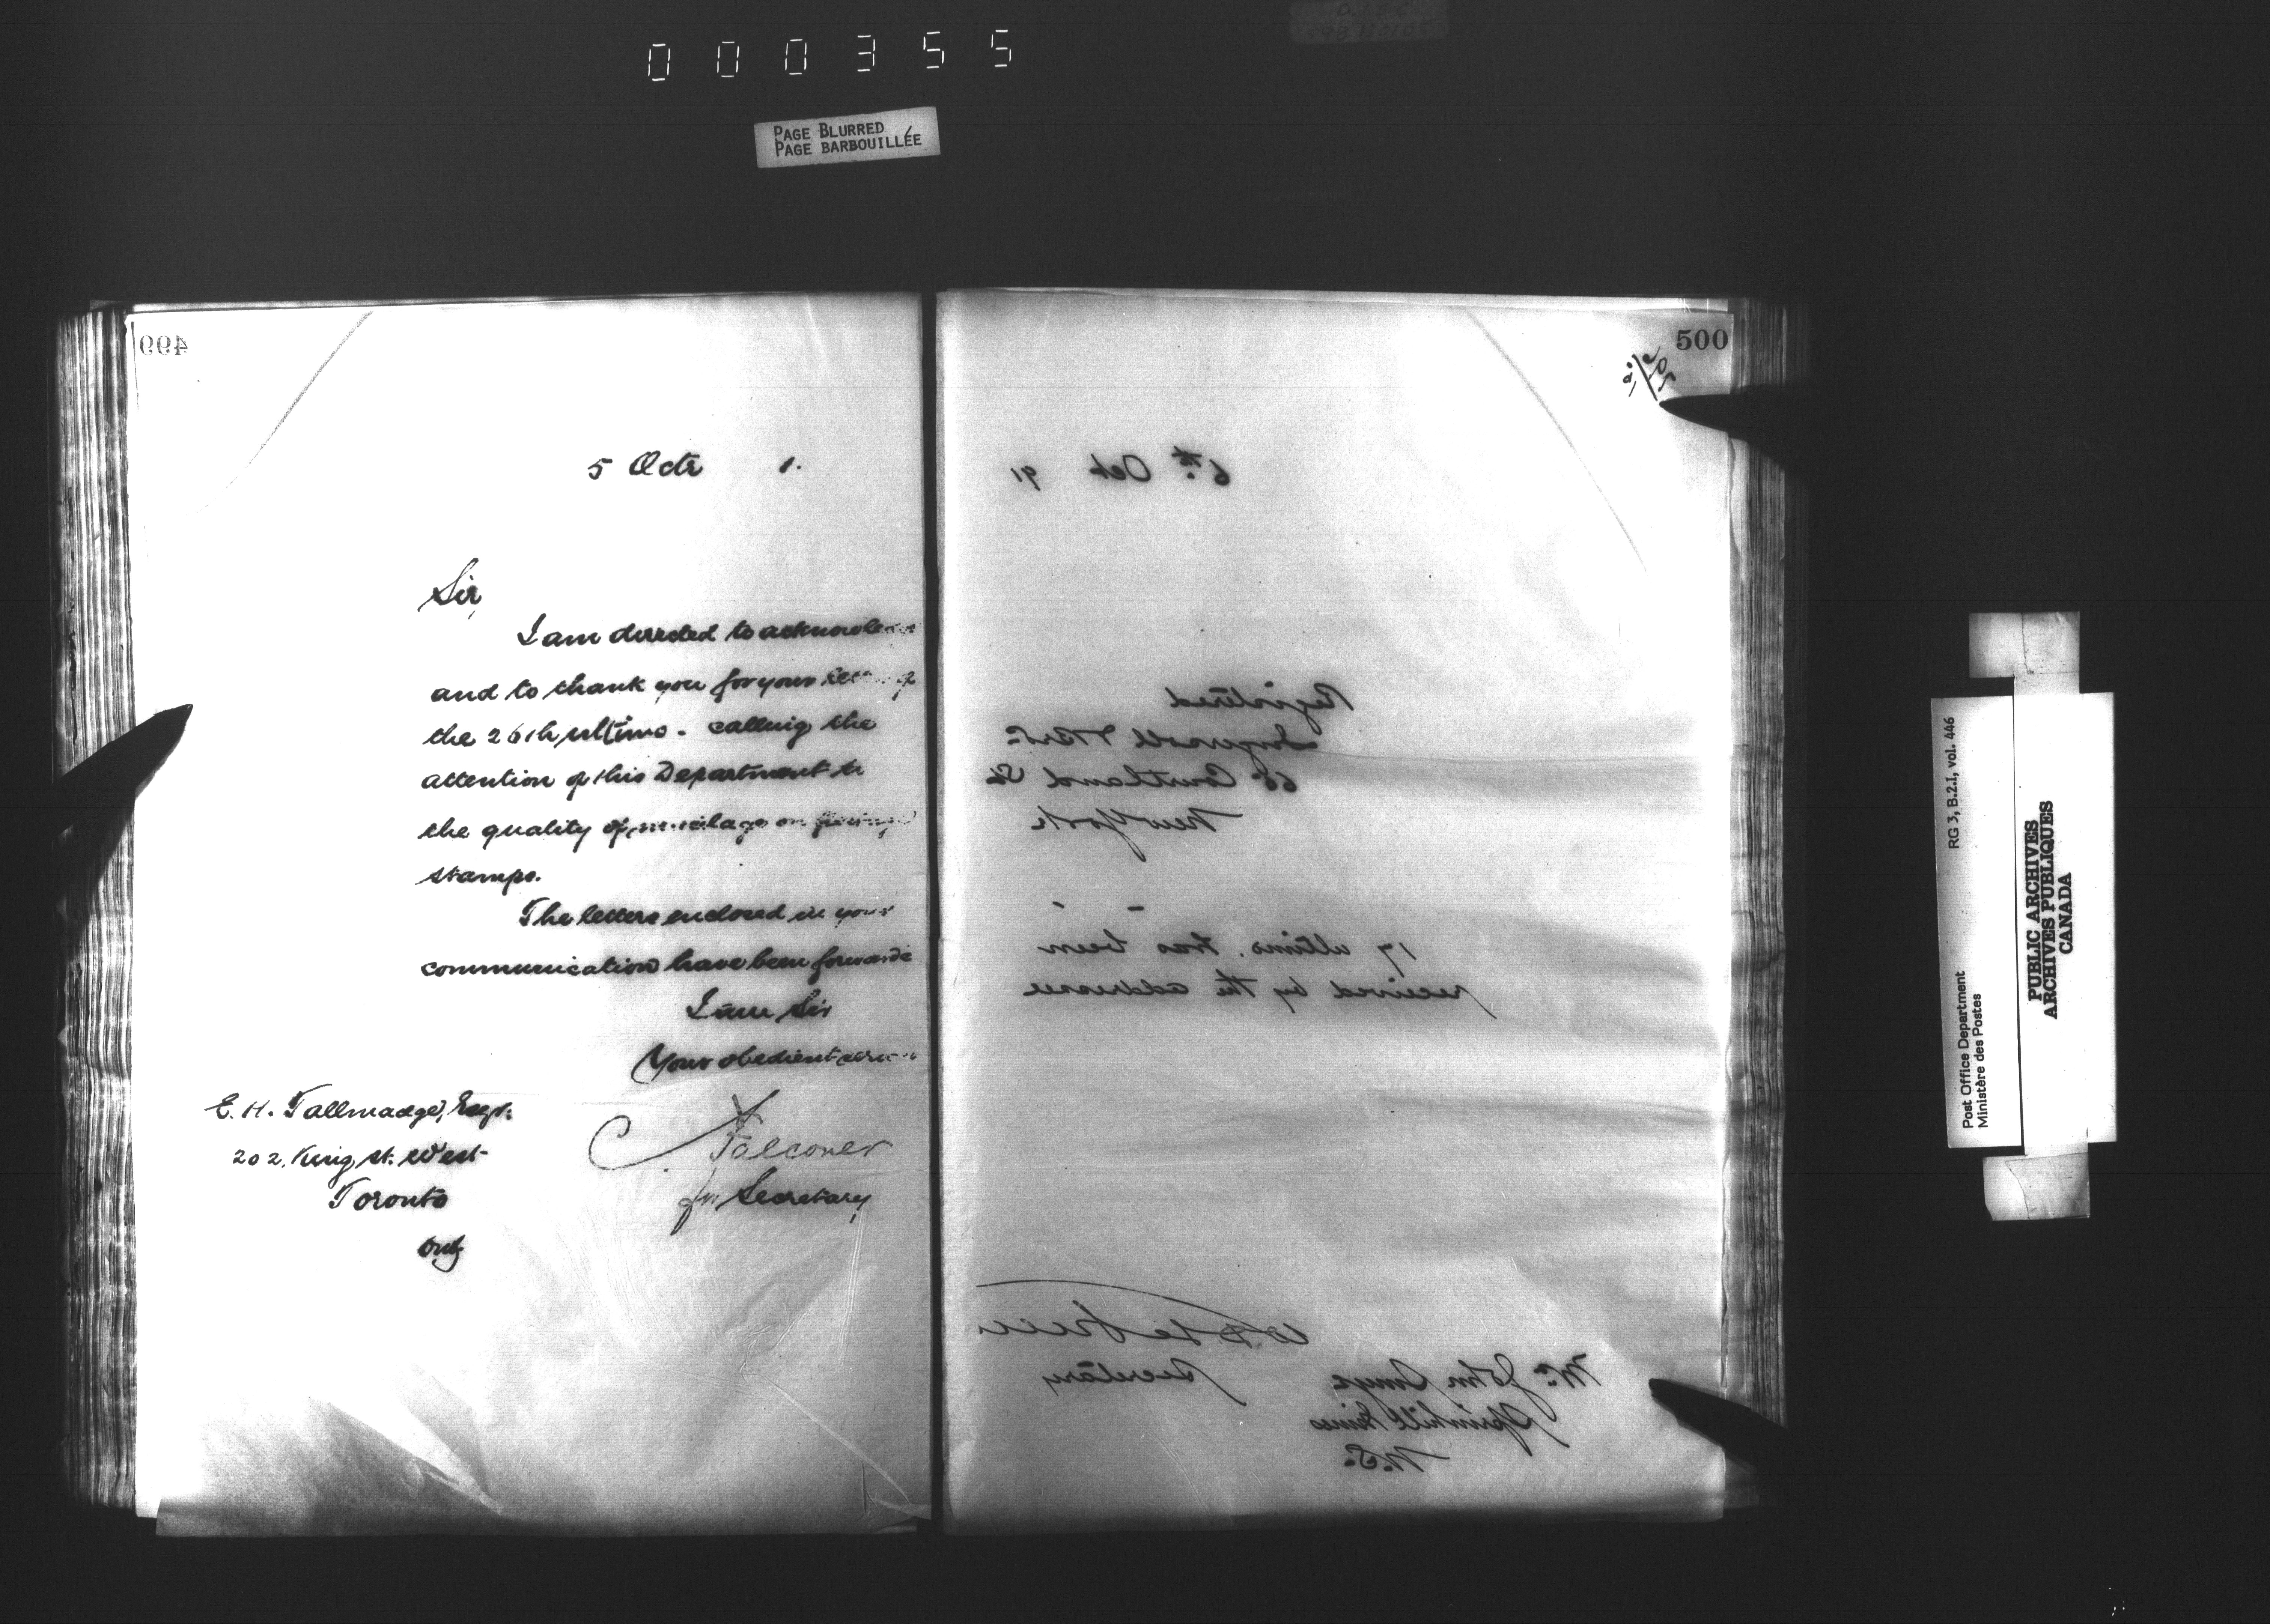 000355
PAGE BLURRED
PAGE BARBOUILLÉE
499
5 Octr 1.
Sir,
I am directed to acknowledge
and to thank you for your letter of
the 26th ultimo. calling the
attention of this Department to
the quality of mucilage on
stamps.
The letters enclosed in your
communication have been forwarde
I am Sir
Your obedient
E. H. Tallmadge, Esqr.
202, King St. West
Toronto
Ont
Falconer
for Secretary
500
6th Oct 91
Registered
Ingersoll & Bro.
65 Courtland St
New York
17 ultimo. has been
received by the addressee
Secretary
Mr John
Springhill Mines
N.S.
Post Office Department
Ministère des Postes
RG 3, B.2.I, vol. 446
PUBLIC ARCHIVES
ARCHIVES PUBLIQUES
CANADA